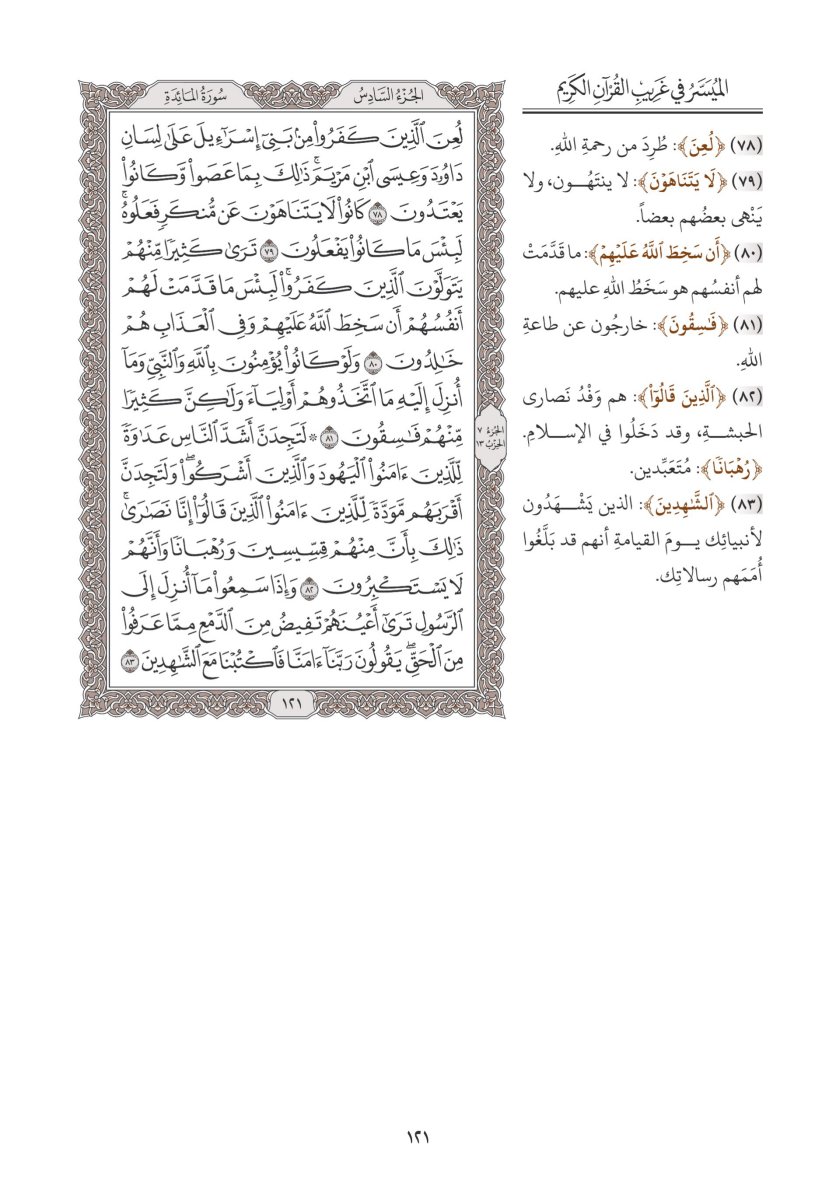 الميسر في غريب القرآن الكريم
(٧٨) ﴿لُعِنَ﴾: طُرِدَ من رحمةِ اللهِ.
(٧٩) ﴿لَا يَتَنَاهَوْنَ﴾: لا ينتَهُـــون، ولا
يَنْهى بعضُهم بعضاً.
(٨٠) ﴿أَن سَخِطَ ٱللَّهُ عَلَيْهِمْ﴾: ما قَدَّمَتْ
لهم أنفسُهم هو سَخَطُ اللهِ عليهم.
(٨١) ﴿فَـٰسِقُونَ﴾: خارجُون عن طاعةِ
اللهِ.
(٨٢) ﴿ٱلَّذِينَ قَالُوٓا۟﴾: هم وَفْدُ نَصارى
الحبشــةِ، وقد دَخَلُوا في الإسـلامِ.
﴿رُهْبَانًا﴾: مُتَعَبِّدين.
(٨٣) ﴿ٱلشَّـٰهِدِينَ﴾: الذين يَشْـــهَدُون
لأنبيائِك يـــومَ القيامةِ أنهم قد بَلَّغُوا
أُمَمَهم رسالاتِك.
الجُزْءُ السَّادِسُ
سُورَةُ المَائِدَةِ
لُعِنَ ٱلَّذِينَ كَفَرُوا۟ مِنۢ بَنِىٓ إِسْرَٰٓءِيلَ عَلَىٰ لِسَانِ
دَاوُۥدَ وَعِيسَى ٱبْنِ مَرْيَمَ ۚ ذَٰلِكَ بِمَا عَصَوا۟ وَّكَانُوا۟
يَعْتَدُونَ ٧٨ كَانُوا۟ لَا يَتَنَاهَوْنَ عَن مُّنكَرٍ فَعَلُوهُ ۚ
لَبِئْسَ مَا كَانُوا۟ يَفْعَلُونَ ٧٩ تَرَىٰ كَثِيرًا مِّنْهُمْ
يَتَوَلَّوْنَ ٱلَّذِينَ كَفَرُوا۟ ۚ لَبِئْسَ مَا قَدَّمَتْ لَهُمْ
أَنفُسُهُمْ أَن سَخِطَ ٱللَّهُ عَلَيْهِمْ وَفِى ٱلْعَذَابِ هُمْ
خَـٰلِدُونَ ٨٠ وَلَوْ كَانُوا۟ يُؤْمِنُونَ بِٱللَّهِ وَٱلنَّبِىِّ وَمَآ
أُنزِلَ إِلَيْهِ مَا ٱتَّخَذُوهُمْ أَوْلِيَآءَ وَلَـٰكِنَّ كَثِيرًا
مِّنْهُمْ فَـٰسِقُونَ ٨١ ۞ لَتَجِدَنَّ أَشَدَّ ٱلنَّاسِ عَدَٰوَةً
لِّلَّذِينَ ءَامَنُوا۟ ٱلْيَهُودَ وَٱلَّذِينَ أَشْرَكُوا۟ ۖ وَلَتَجِدَنَّ
أَقْرَبَهُم مَّوَدَّةً لِّلَّذِينَ ءَامَنُوا۟ ٱلَّذِينَ قَالُوٓا۟ إِنَّا نَصَـٰرَىٰ ۚ
ذَٰلِكَ بِأَنَّ مِنْهُمْ قِسِّيسِينَ وَرُهْبَانًا وَأَنَّهُمْ
لَا يَسْتَكْبِرُونَ ٨٢ وَإِذَا سَمِعُوا۟ مَآ أُنزِلَ إِلَى
ٱلرَّسُولِ تَرَىٰٓ أَعْيُنَهُمْ تَفِيضُ مِنَ ٱلدَّمْعِ مِمَّا عَرَفُوا۟
مِنَ ٱلْحَقِّ ۖ يَقُولُونَ رَبَّنَآ ءَامَنَّا فَٱكْتُبْنَا مَعَ ٱلشَّـٰهِدِينَ ٨٣
الجُزْءُ ٧
الحِزْبُ ١٣
١٢١
١٢١